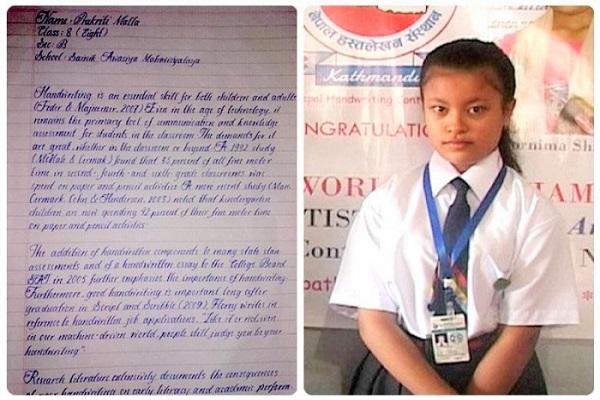 Name:- Prakriti Malla
Class:- 8 (Eight)
Sec:- B
School:- Sainik Awasiya Mahavidyalaya
Handwriting is an essential skill for both children and adults
(Feder & Majnemer, 2007) Even in the age of technology, it
remains the primary tool of communication and knowledge
assessment for students in the classroom The demands for it
are great, whether in the classroom or beyond A 1992 study
(McHale & Cermak) found that 85 percent of all fine motor
time in second- fourth- and sixth-grade classrooms was
spent on paper and pencil activities A more recent study (Marr
Cermark, Cohn & Henderson, 2003) noted that kindergarten
children are now spending 42 percent of their fine motor time
on paper and pencil activities
The addition of handwritten components to many state
assessments and of a handwritten essay to the College Board
SAT in 2005 further emphasize the importance of handwriting
Furthermore, good handwriting is important long after
graduation In Script and Scribble (2009), Florey writes in
reference to handwritten job applications, "Like it or not, even
in our machine-driven world, people still judge you by your
handwriting"
Research literature extensively documents the consequences
of poor handwriting on early literacy and academic perform
नेपाल हस्तलेखन संस्थान
Kathmandu
Nepal Handwriting
CONGRATULATI
Purnima Sh
WOR
HAM
TIST
An
Con
N